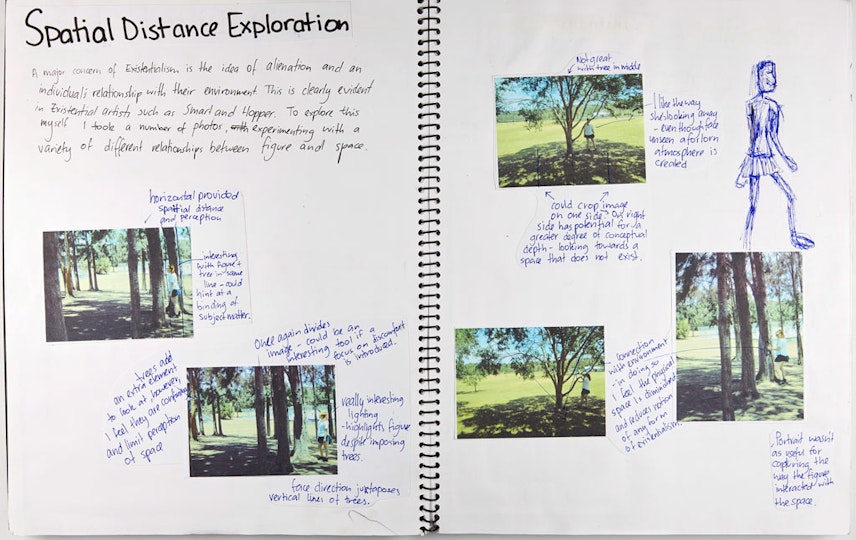 Spatial Distance Exploration
A major concern of Existentialism is the idea of alienation and an
individuals relationship with their environment. This is clearly evident
in Existential artists such as Smart and Hopper. To explore this
myself I took a number of photos, experimenting with a
variety of different relationships between figure and space.
horizontal provided
spatial distance
and perception
interesting
with figure +
tree in same
line - could
hint at a
binding of
subject matter.
Once again divides
image - could be an
interesting tool if a
focus on discomfort
is introduced.
trees add
an extra element
to look at however,
I feel they are confining
and limit perception
of space
really interesting
lighting
- highlights figure
despite imposing
trees.
face direction juxtaposes
vertical lines of trees.
Not great
with tree in middle
I like the way
she's looking away
- even though face
unseen a forlorn
atmosphere is
created
could crop image
on one side. Our right
side has potential for a
greater degree of conceptual
depth - looking towards a
space that does not exist.
connection
with environment
- in doing so
I feel the physical
space is diminished
and reduces notion
of any form
of existentialism.
Portrait wasn't
as useful for
capturing the
way the figure
interacted with
the space.